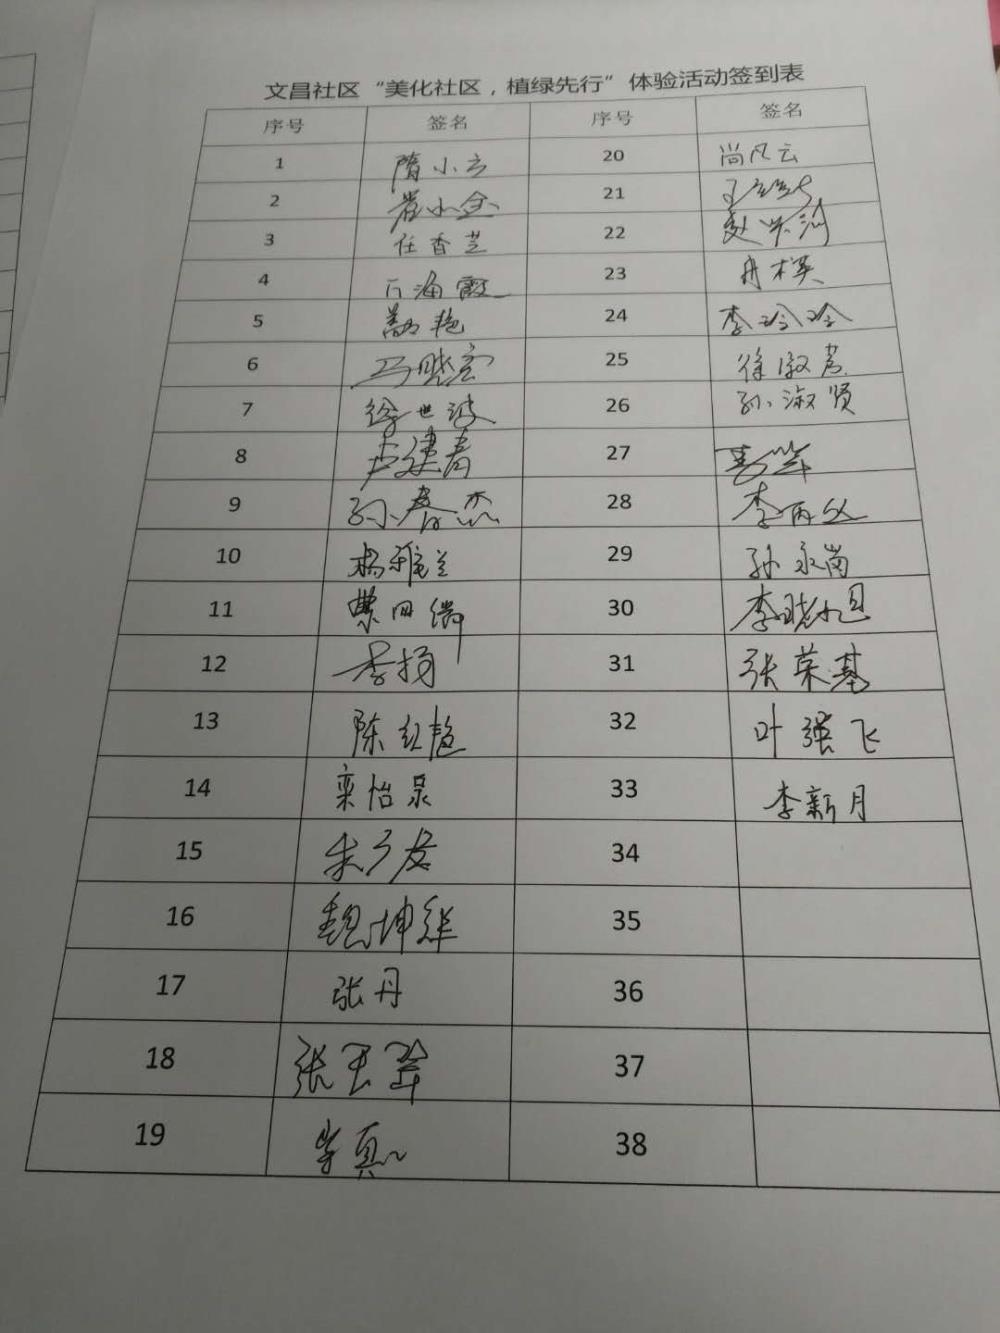 文昌社区“美化社区，植绿先行”体验活动签到表
序号 签名 序号 签名
1 隋小立 20 尚风云
2 21
3 任香芝 22
4 海霞 23
5 艳 24 李玲玲
6 马晓宏 25 徐淑芳
7 徐世波 26 孙淑贤
8 卢建春 27
9 孙春杰 28 李丙文
10 杨雅兰 29 孙永岗
11 30 李晓旭
12 李扬 31 张荣基
13 陈红艳 32 叶强飞
14 栾怡泉 33 李新月
15 34
16 魏坤 35
17 张丹 36
18 张玉萍 37
19 38